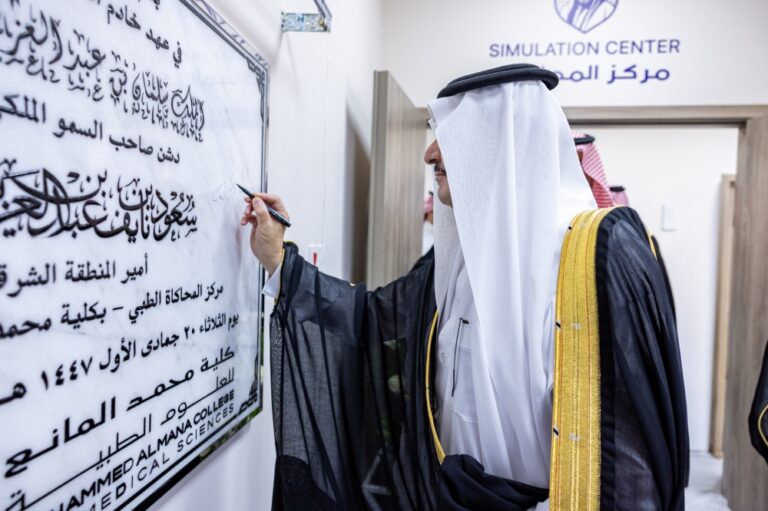 في عهد خادم
الملك سلمان بن عبدالعزيز
دشن صاحب السمو الملكي
سعود بن نايف بن عبدالعزيز
أمير المنطقة الشرق
مركز المحاكاة الطبي – بكلية محمد
يوم الثلاثاء ٢٠ جمادى الأول ١٤٤٧ هـ
كلية محمد المانع
للعلوم الطبية
HAMMED ALMANA COLLEGE
MEDICAL SCIENCES
SIMULATION CENTER
مركز المح